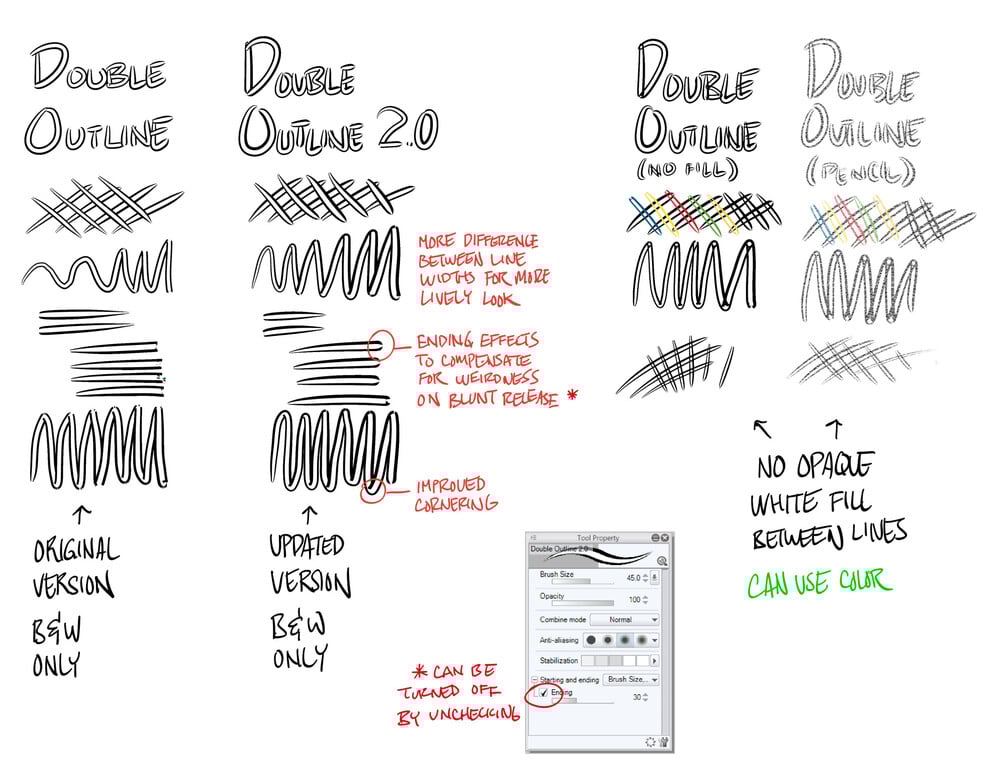 DOUBLE
OUTLINE
↑
ORIGINAL
VERSION
B&W
ONLY
DOUBLE
OUTLINE 2.0
MORE DIFFERENCE
BETWEEN LINE
WIDTHS FOR MORE
LIVELY LOOK
ENDING EFFECTS
TO COMPENSATE
FOR WEIRDNESS
ON BLUNT RELEASE *
IMPROVED
CORNERING
↑
UPDATED
VERSION
B&W
ONLY
* CAN BE
TURNED OFF
BY UNCHECKING
Tool Property
Double Outline 2.0
Brush Size 45.0
Opacity 100
Combine mode Normal
Anti-aliasing
Stabilization
Starting and ending Brush Size,..
Ending 30
DOUBLE
OUTLINE
(NO FILL)
DOUBLE
OUTLINE
(PENCIL)
↖ ↑
NO OPAQUE
WHITE FILL
BETWEEN LINES
CAN USE COLOR